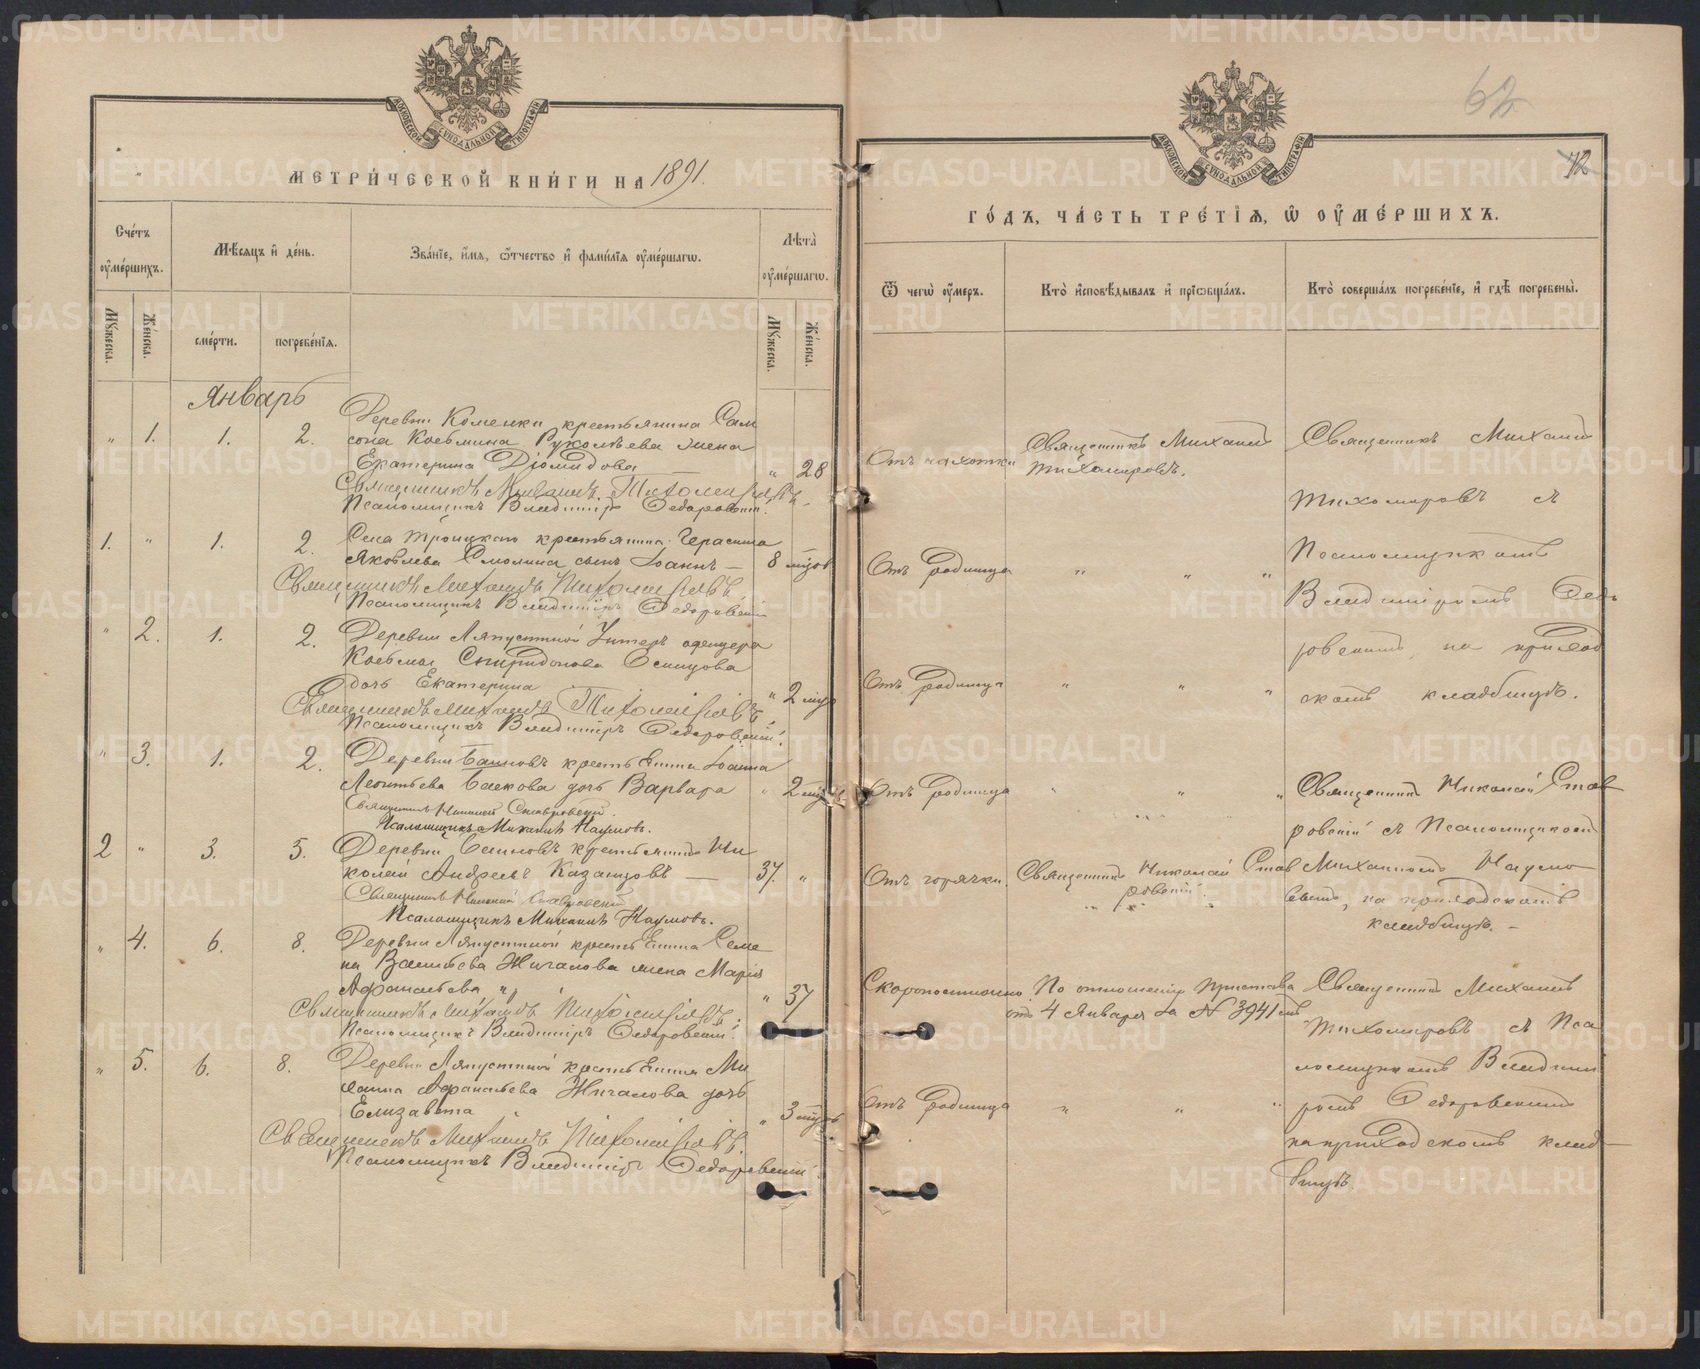 МОСКОВСКОЙ СѴНОДАЛЬНОЙ ТИПОГРАФІИ
МЕТРИ́ЧЕСКОЙ КНИ́ГИ НА 1891.
Сче́тъ ᲂу҆ме́ршихъ.
Мѣ́сяцъ и҆ де́нь.
Зва́нїе, и҆́мѧ, ѻ҆́тчество и҆ фами́лїѧ ᲂу҆ме́ршагѡ.
Лѣ́та ᲂу҆ме́ршагѡ.
Мꙋ́жеска.
Же́нска.
сме́рти.
погребе́нїѧ.
Мꙋ́жеска.
Же́нска.
Январь
" 1. 1. 2. Деревни Каменки крестьянина Сам
сона Косьмина Руколѣева жена
Екатерина Діомидова — " 28
Священникъ Михаилъ Тихомировъ.
Псаломщикъ Владиміръ Ѳедоровскій.
1. " 1. 2. Села Троицкаго крестьянина Герасима
Яковлева Смолина сынъ Іоаннъ — 8 мѣсов
Священникъ Михаилъ Тихомировъ.
Псаломщикъ Владиміръ Ѳедоровскій
" 2. 1. 2. Деревни Ляпустиной Унтеръ офицера
Косьмы Спиридонова Осинцова
дочь Екатерина " 2 мѣс
Священникъ Михаилъ Тихомировъ.
Псаломщикъ Владиміръ Ѳедоровскій.
" 3. 1. 2. Деревни Баиновъ крестьянина Іоанна
Леонтьева Баскова дочь Варвара " 2 мѣс
Священникъ Николай Ставровскій.
Псаломщикъ Михаилъ Наумовъ.
2 " 3. 5. Деревни Баиновъ крестьянинъ Ни
колай Андреевъ Казанцовъ — 37. "
Священникъ Николай Ставровскій
Псаломщикъ Михаилъ Наумовъ.
" 4. 6. 8. Деревни Ляпустиной крестьянина Семе
на Васильева Жигалова жена Марія
Афанасьева " 37
Священникъ Михаилъ Тихомировъ.
Псаломщикъ Владиміръ Ѳедоровскій.
" 5. 6. 8. Деревни Ляпустиной крестьянина Ми
хаила Афанасьева Жигалова дочь
Елизавета " 3 мѣсов
Священникъ Михаилъ Тихомировъ.
Псаломщикъ Владиміръ Ѳедоровскій.
62
МОСКОВСКОЙ СѴНОДАЛЬНОЙ ТИПОГРАФІИ
42
ГО́ДЪ, ЧА́СТЬ ТРЕ́ТІѦ, Ѡ҆ ОУ҆МЕ́РШИХЪ.
Ѿ чегѡ̀ ᲂу҆́меръ.
Кто̀ и҆сповѣ́дывалъ и҆ прїѡбща́лъ.
Кто̀ соверша́лъ погребе́нїе, и҆ гдѣ̀ погребены̀.
Отъ чахотки
Священникъ Михаилъ
Тихомировъ.
Священникъ Михаилъ
Тихомировъ съ
Псаломщикомъ
Владиміромъ Ѳедо
ровскимъ, на приход
скомъ кладбищѣ.
Отъ родимца " " "
Отъ родимца " " "
Отъ родимца " " "
Священникъ Николай Став
ровскій съ Псаломщикомъ
Михаиломъ Наумо
вымъ, на приходскомъ
кладбищѣ. —
Отъ горячки.
Священникъ Николай Став
ровскій.
Скоропостижно
По отношенію Пристава
отъ 4 Января за № 3941мъ
Священникъ Михаилъ
Тихомировъ съ Пса
ломщикомъ Владими
ромъ Ѳедоровскимъ
на приходскомъ клад
бищѣ.
Отъ родимца " " "
METRIKI.GASO-URAL.RU